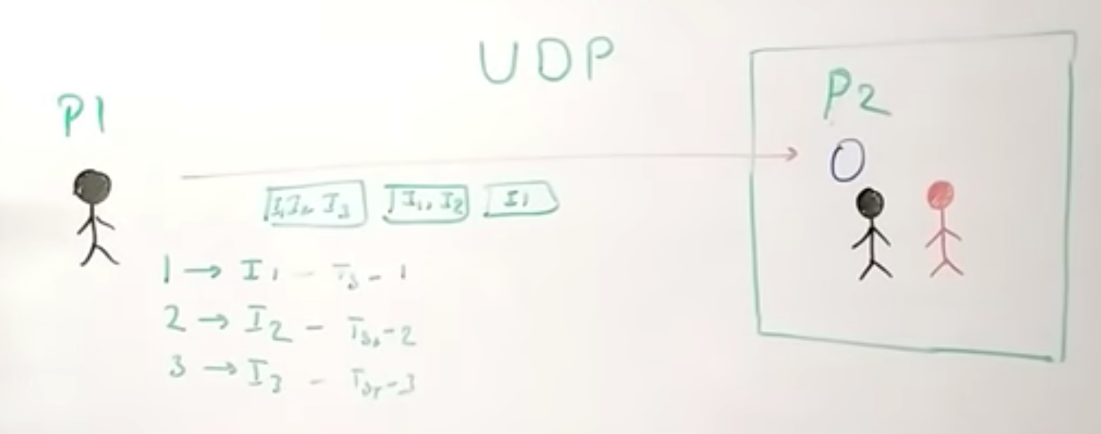 UDP
P1
P2
I1 I2 I3
I1, I2
I1
1 → I1 - Ts-1
2 → I2 - Ts-2
3 → I3 - Ts-3